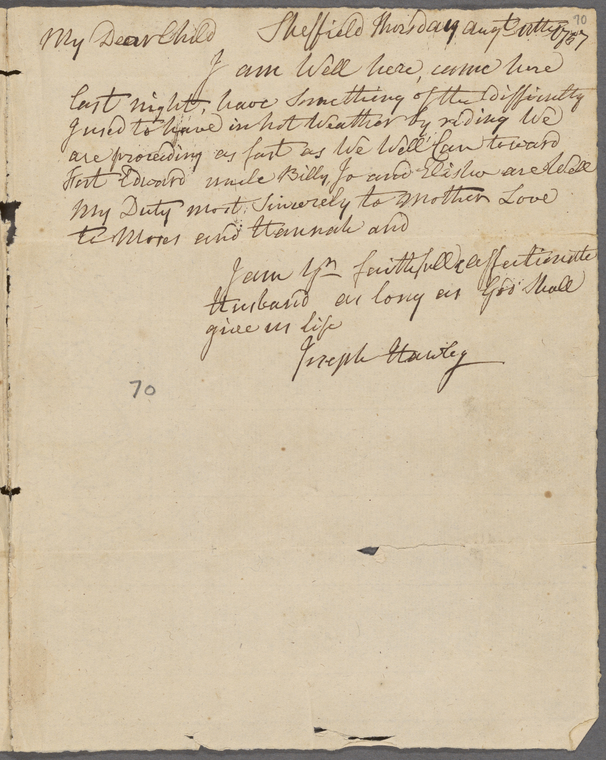 70
My Dear Child Sheffield Thorsday augt 1757
I am Well here, came here
last night, have Something of the Difficulty
I used to have in hot Weather by riding We
are proceding as fast as We Well Can toward
Fort Edward uncle Billy, Jo and Elisha are Well
My Duty most Sincerely to Mother Love
to Moses and Hannah and
I am yr faithfull & affectionate
Husband as long as God Shall
give us life
Joseph Hawley
70